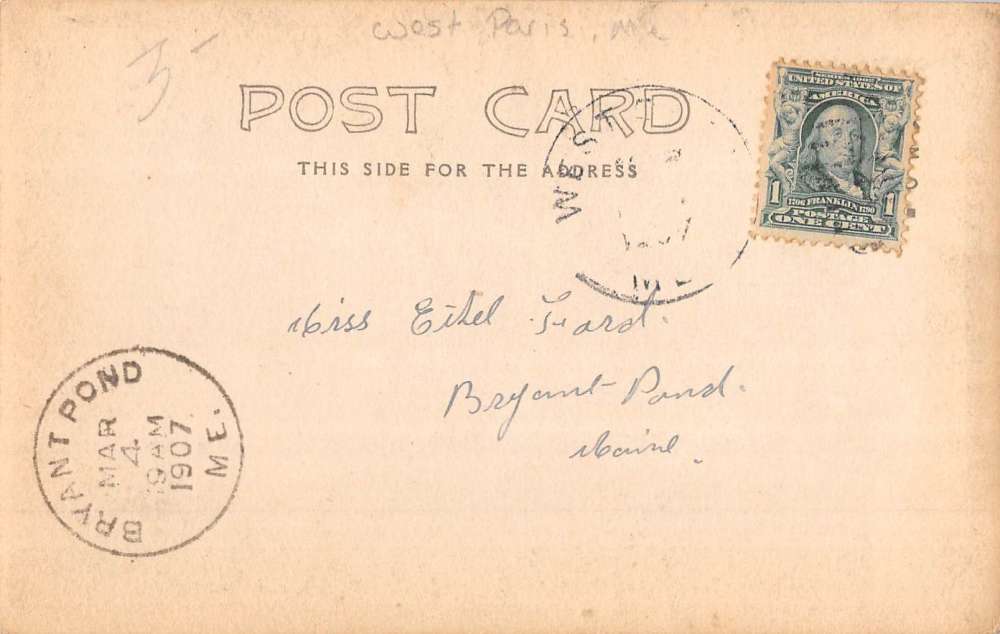 West Paris, Me
3-
POST CARD
THIS SIDE FOR THE ADDRESS
WEST
ME
SERIES 1902
UNITED STATES OF
AMERICA
1 1706 FRANKLIN 1790 1
POSTAGE
ONE CENT
Miss Ethel
Bryant Pond.
Maine.
BRYANT POND
MAR
4
9 AM
1907
ME.